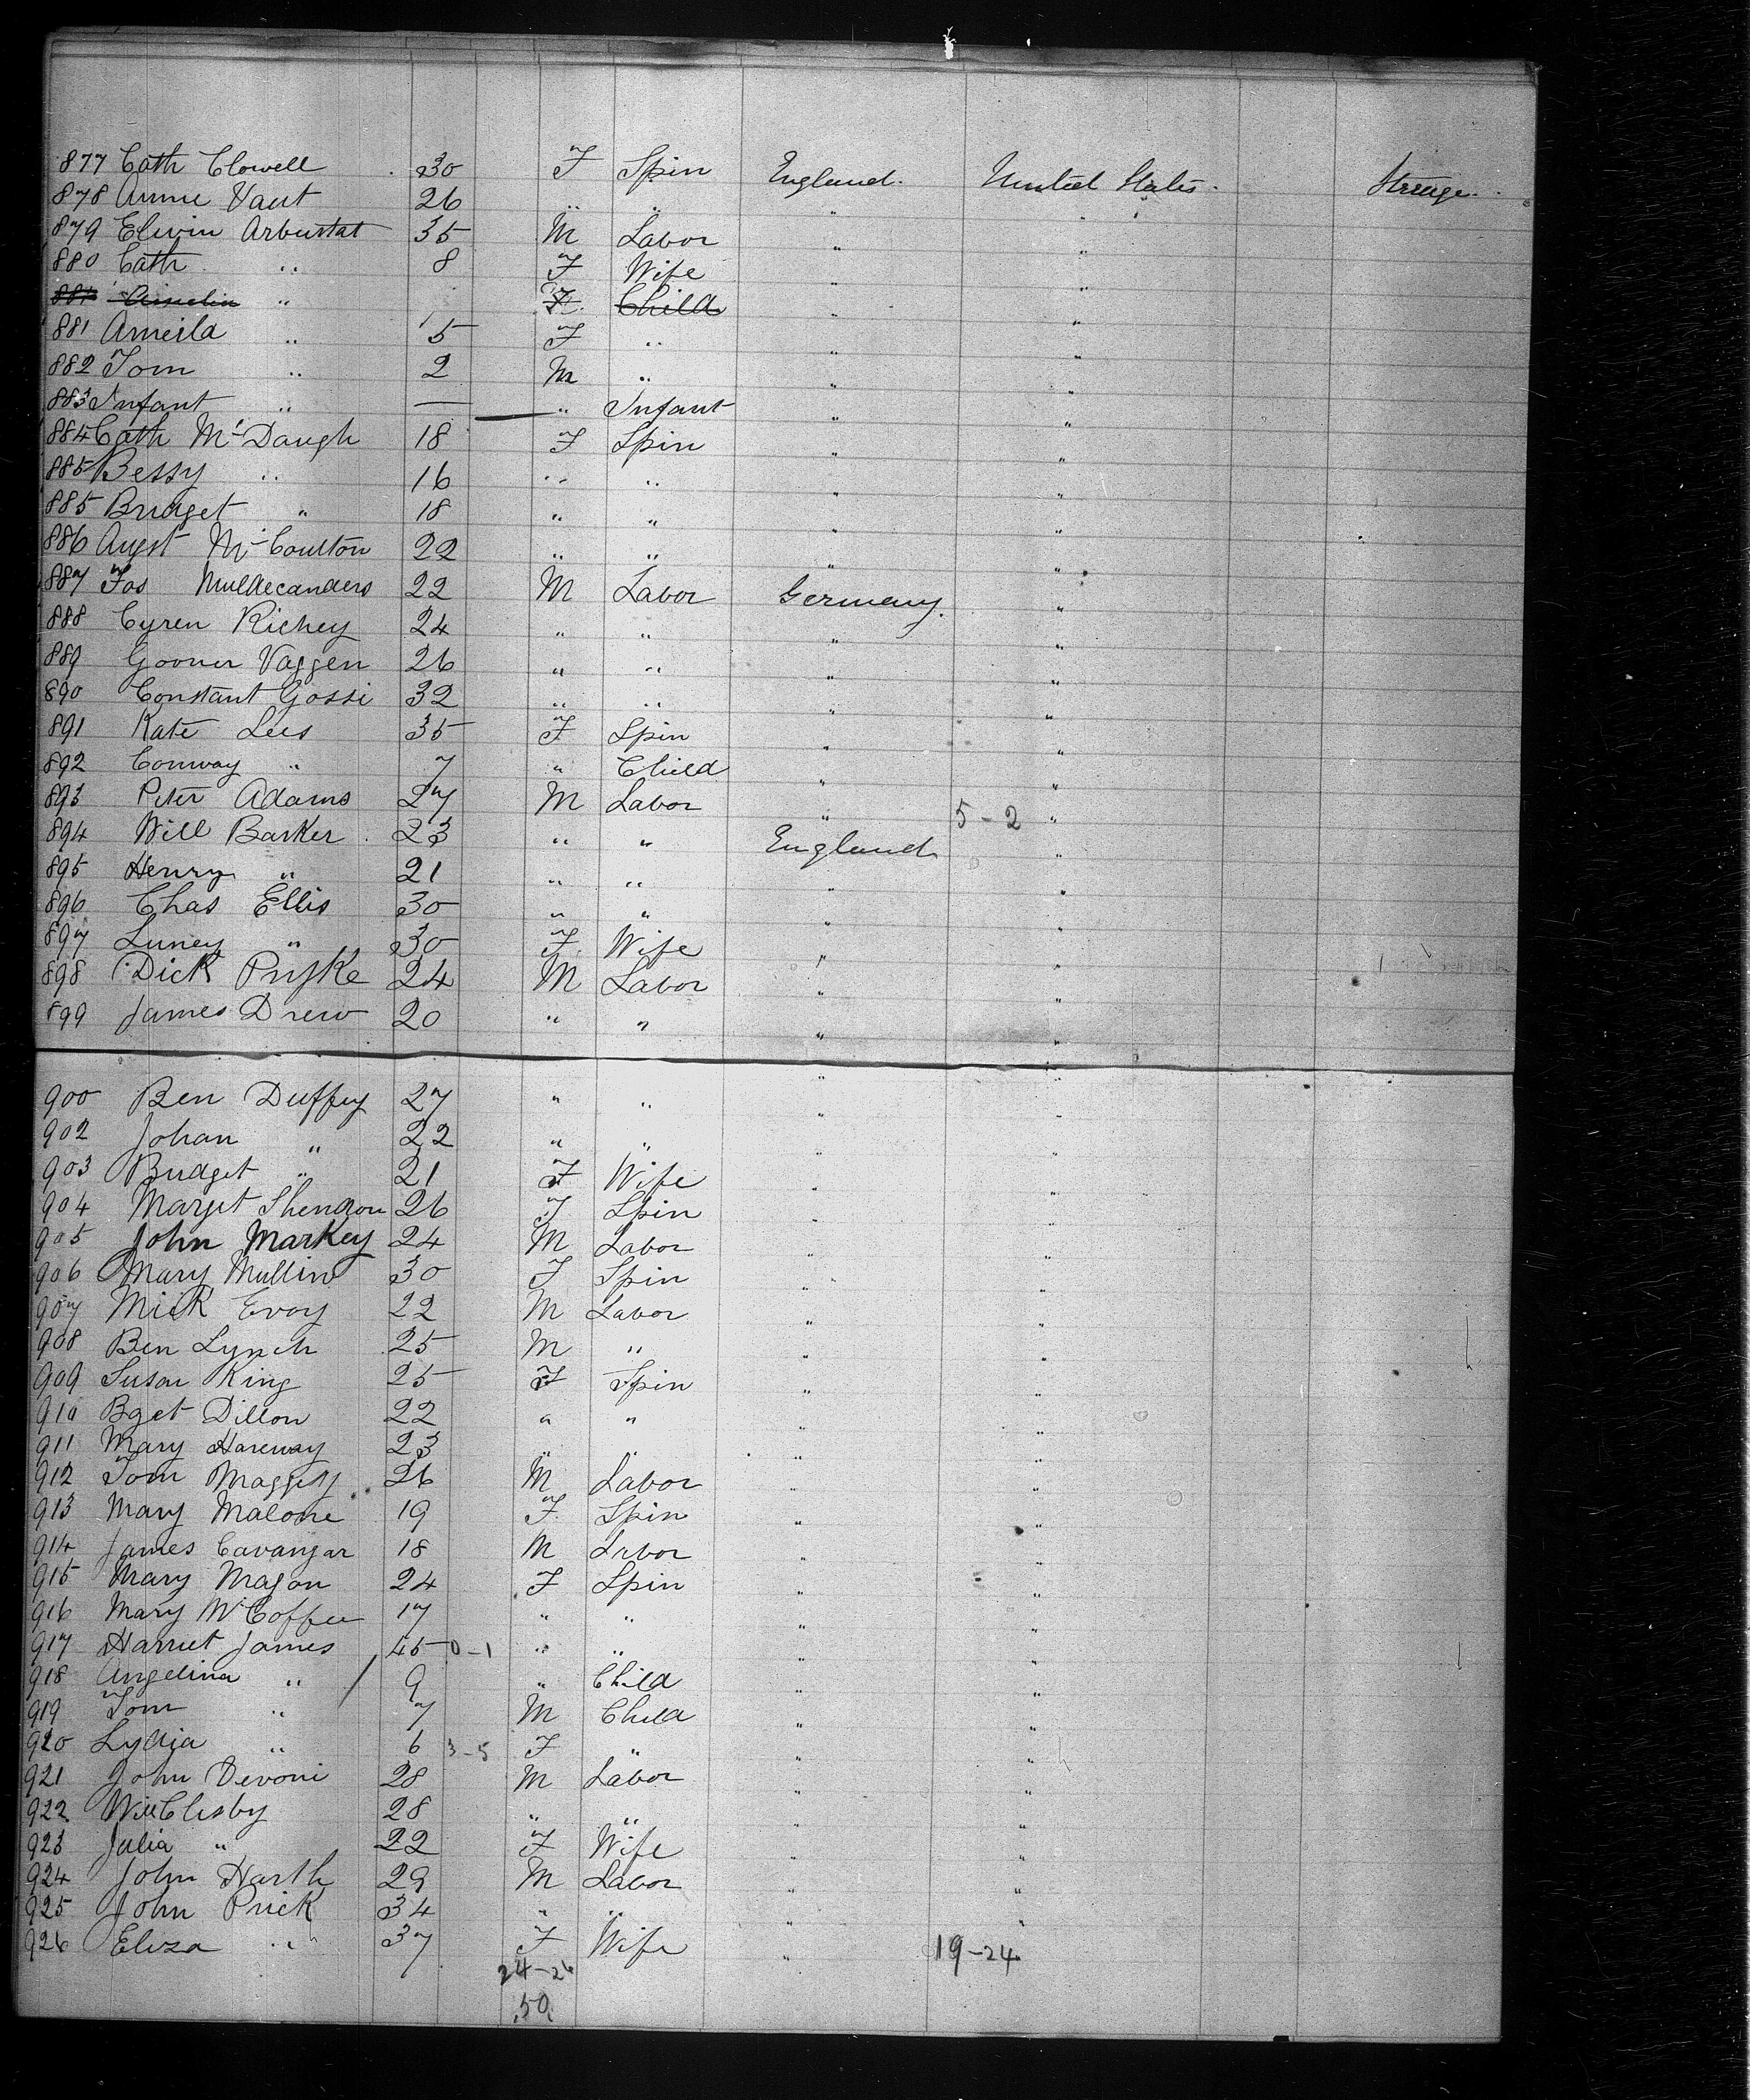 877 Cath Clowell 30 F Spin England. United States. Steerage.
878 Annie Vant 26 " " " "
879 Elwin Arbustat 35 M Labor " "
880 Cath " 8 F Wife " "
881 " F Child " "
881 Ameila " 5 F " " "
882 Tom " 2 M " " "
883 Infant " — " Infant " "
884 Cath McDaugh 18 F Spin " "
885 Bessy " 16 " " " "
885 Bridget " 18 " " " "
886 Augst McCoulton 22 " " " "
887 Jos Muldecanders 22 M Labor Germany. "
888 Cyren Richey 24 " " " "
889 Gooner Vaggen 26 " " " "
890 Constant Gossi 32 " " " "
891 Kate Lees 35 F Spin " "
892 Conway " 7 " Child " "
893 Peter Adams 27 M Labor " 5-2 "
894 Will Barker 23 " " England "
895 Henry " 21 " " " "
896 Chas Ellis 30 " " " "
897 Luney " 30 F Wife " "
898 Dick Pryske 24 M Labor " "
899 James Drew 20 " " " "
900 Ben Duffey 27 " " " "
902 Johan " 22 " " " "
903 Bridget " 21 F Wife " "
904 Marget Shendon 26 F Spin " "
905 John Markey 24 M Labor " "
906 Mary Mullin 30 F Spin " "
907 Mick Evoy 22 M Labor " "
908 Ben Lynch 25 M " " "
909 Susan King 25 F Spin " "
910 Bget Dillon 22 " " " "
911 Mary Hareway 23 " " " "
912 Tom Maggity 26 M Labor " "
913 Mary Malone 19 F Spin " "
914 James Cavangar 18 M Labor " "
915 Mary Magan 24 F Spin " "
916 Mary McCoffee 17 " " " "
917 Harriet James 45 0-1 " " " "
918 Angelina " 9 " Child " "
919 Tom " 7 M Child " "
920 Lydia " 6 3-5 F " " "
921 John Devoni 28 M Labor " "
922 Will Clisby 28 " " " "
923 Julia " 22 F Wife " "
924 John Harth 29 M Labor " "
925 John Prick 34 " " " "
926 Eliza " 37 F Wife " 19-24
24-26
50